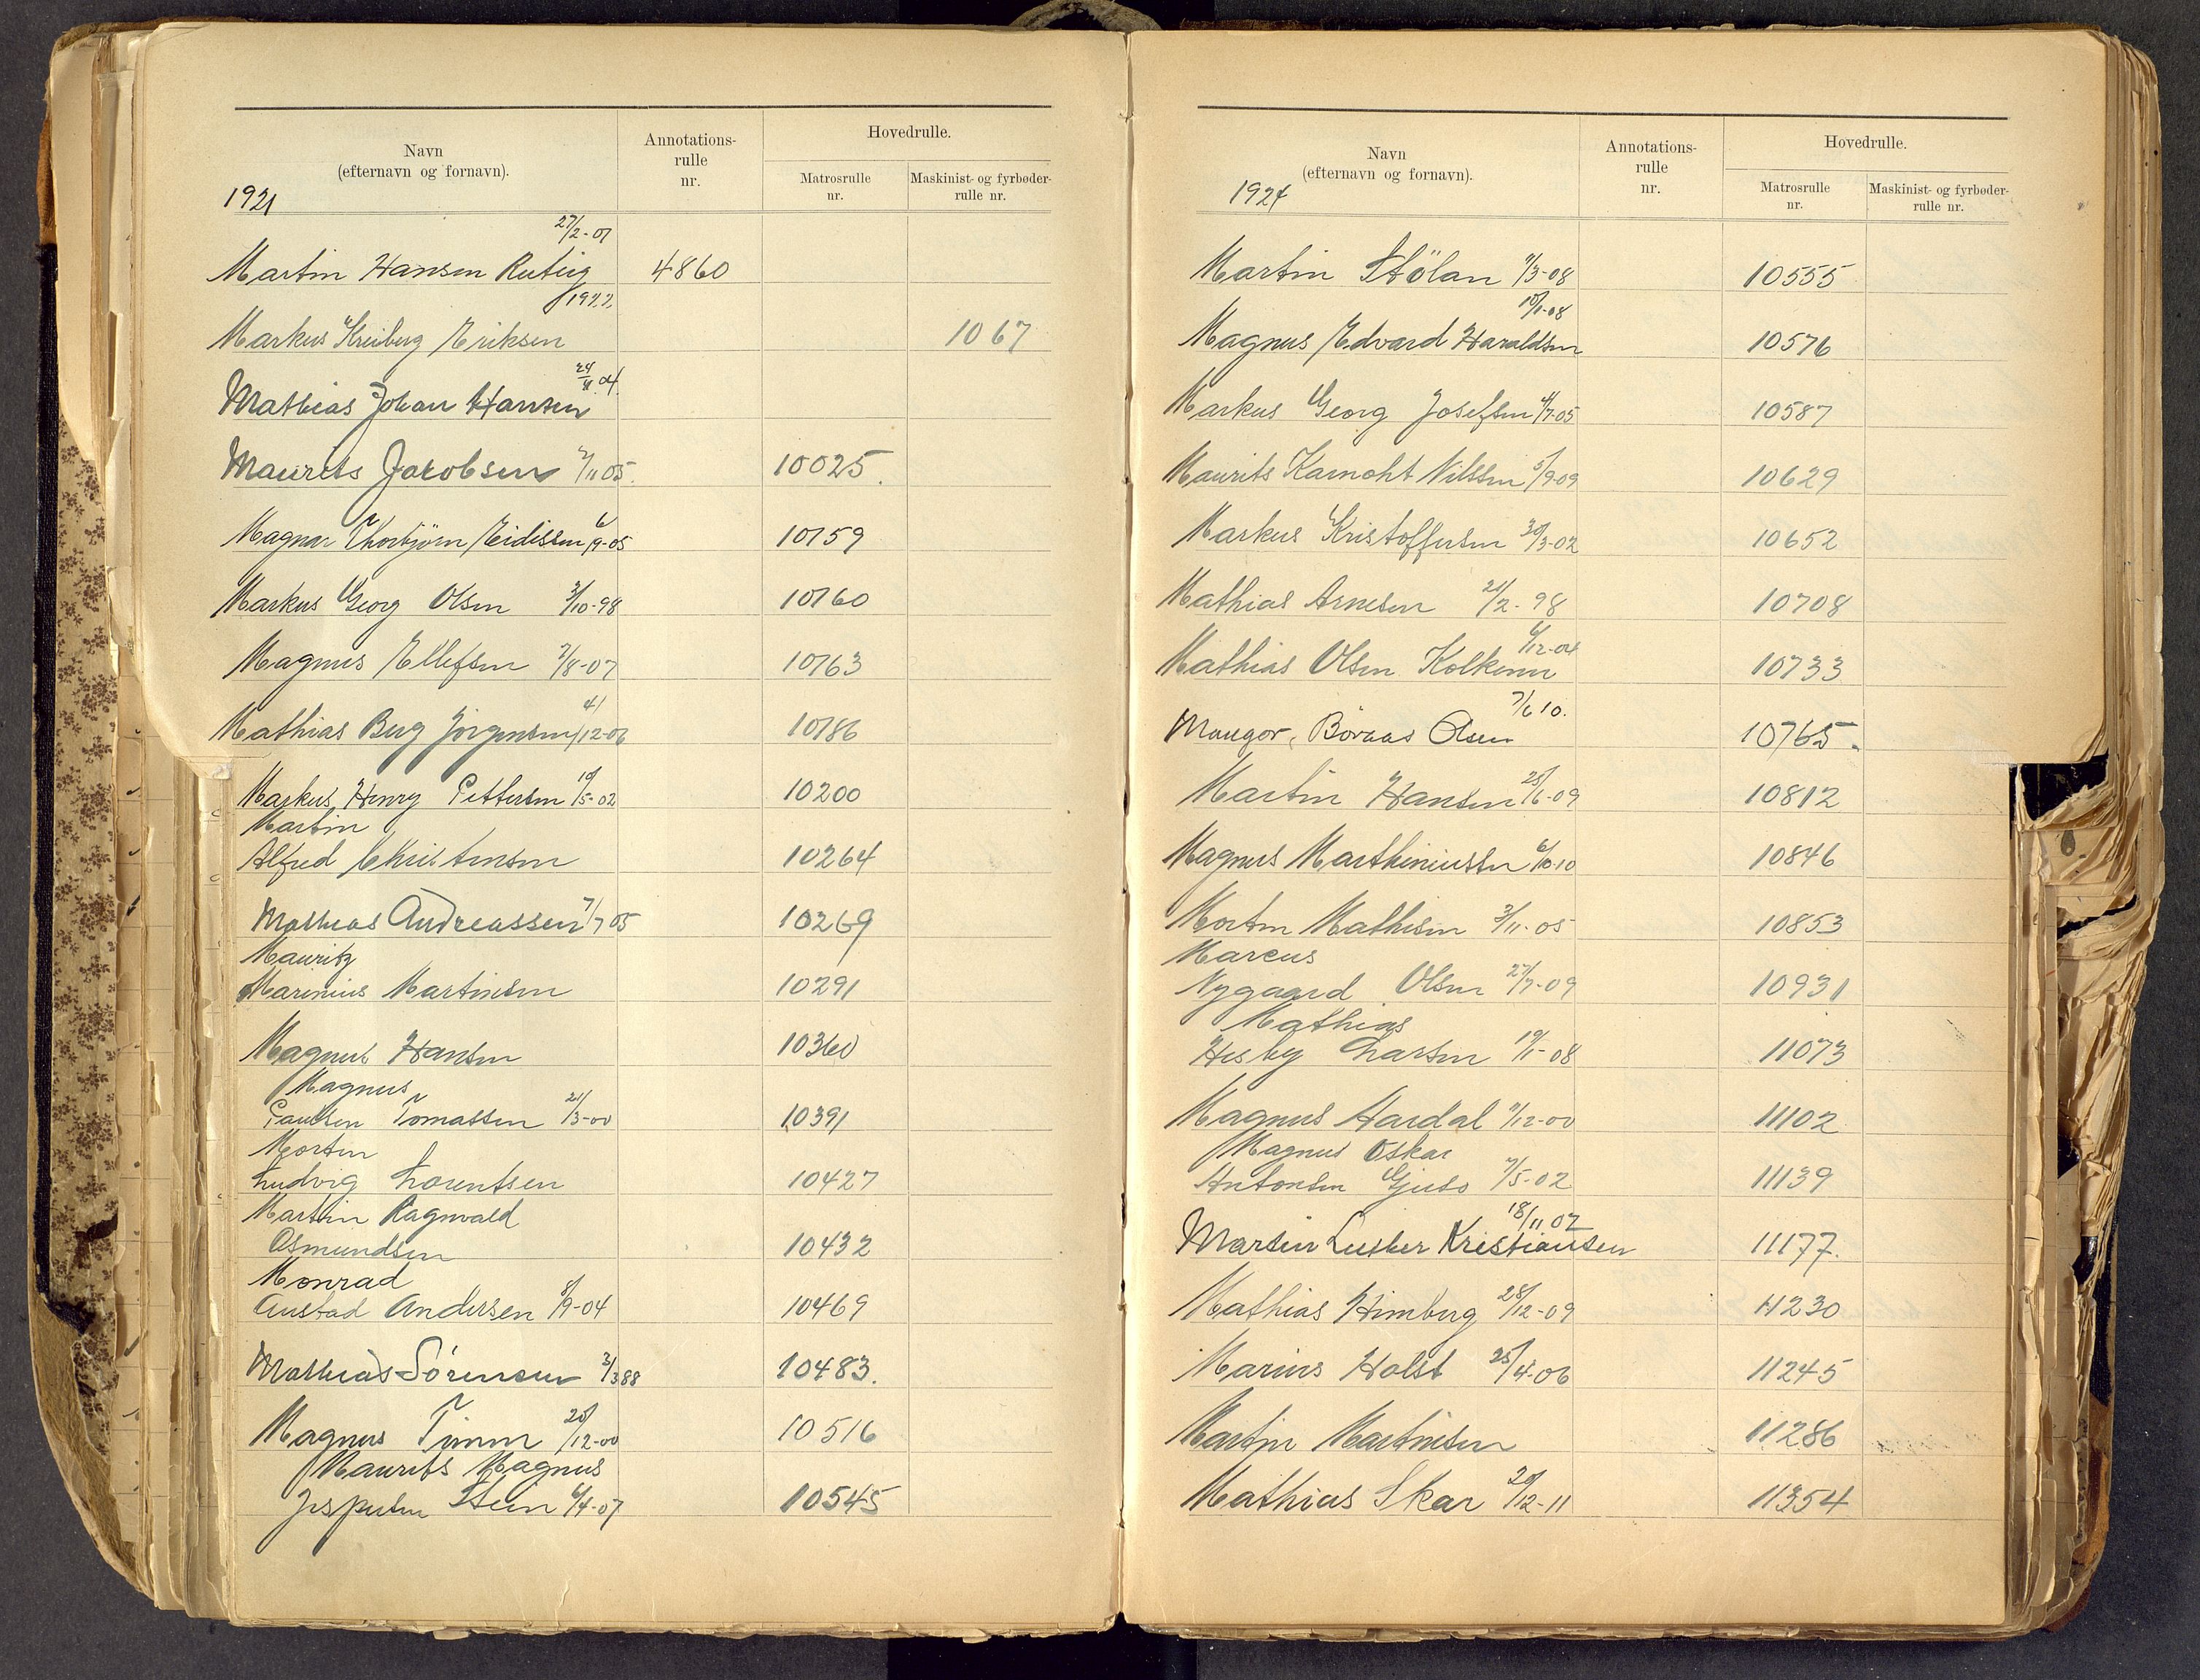 Navn
(efternavn og fornavn).
Annotations-
rulle
nr.
Hovedrulle.
Matrosrulle
nr.
Maskinist- og fyrbøder-
rulle nr.
1921
27/2-01
Martin Hansen 4860
1922
Markus Kreiberg Eriksen 1067
24/11 04.
Mathias Johan Hansen
Maurits Jacobsen 2/11 05. 10025.
Magnar Thorbjørn Eidissen 6/9-05 10159
Markus Georg Olsen 3/10-98 10160
Magnus Ellefsen 7/8-07 10163
Mathias Berg Jörgensen 4/12-06 10186
Markus Henry Pettersen 10/5-02 10200
Martin
Alfred Christensen 10264
Mathias Andreassen 7/7 05 10269
Mauritz
Marinius Martinsen 10291
Magnus Hansen 10360
Magnus
Paulsen Tomassen 21/3-00 10391
Morten
Ludvig Lorentsen 10427
Martin Ragnvald
Osmundsen 10432
Monrad
Austad Andersen 8/9-04 10469
Mathias Sörensen 3/3 88 10483.
Magnus Timm 20/12-00 10516
Maurits Magnus
Jespersen Stein 6/4-07 10545
Navn
(efternavn og fornavn).
Annotations-
rulle
nr.
Hovedrulle.
Matrosrulle
nr.
Maskinist- og fyrbøder-
rulle nr.
1924
Martin Stölan 11/3-08 10555
10/1-08
Magnus Edvard Haraldsen 10576
Markus Georg Josefsen 4/7-05 10587
Maurits Karnoht Nilssen 5/9-09 10629
Markus Kristoffersen 30/3-02 10652
Mathias Arnesen 21/2-98 10708
6/12-04
Mathias Olsen Kolkinn 10733
7/6 10.
Mangor, Böraas Olsen 10765.
Martin Hansen 25/6-09 10812
Magnus Marthiniussen 6/10-10 10846
Morten Mathisen 3/11-05 10853
Marcus
Nygaard Olsen 27/7-09 10931
Mathias
Hesby Larsen 19/1-08 11073
Magnus Aardal 11/12-00 11102
Magnus Oskar
Antonsen Gjuso 7/5-02 11139
18/11 07
Martin Luther Kristiansen 11177.
Mathias Himberg 28/12-09 11230
Marius Holst 25/4-06 11245
Martin Martinsen 11286
Mathias Skar 20/12-11 11354